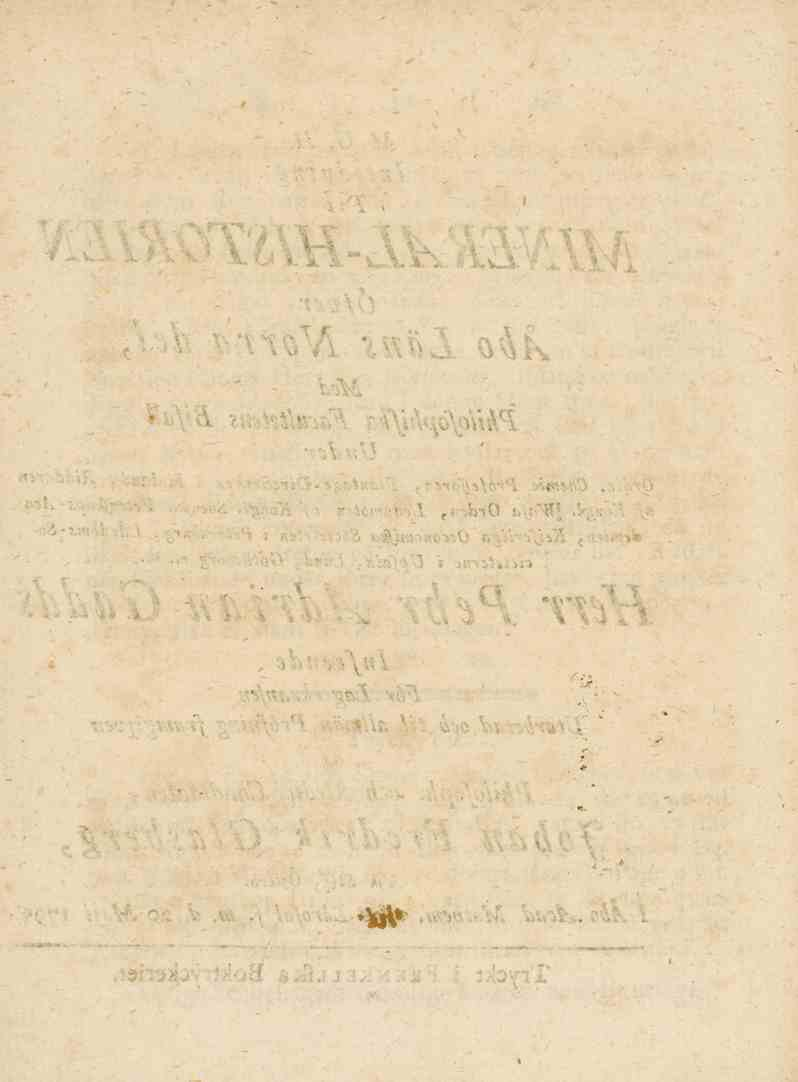 M. G. H.
Inledning
Til
MINERAL-HISTORIEN
Öfver
Åbo Läns Norra del,
Med
Philosophiska Facultetens Bifall
Under
Ordin. Chemie Professoren, Plantage-Directeuren i Finland, Riddaren
af Kongl. Wasa Orden, Ledamoten af Kongl. Svenska Vetenskaps-Aca-
demien, Keiserliga Oeconomiska Societeten i Petersburg, Lärdoms-So-
cieteterne i Upsala, Lund, Götheborg
Herr Pehr Adrian Gadds
Inseende
För Lagerkransen
Utarbetad och til allmän Pröfning framgifven
af
Philosoph. och Candidaten,
Johan Fredrik Glasberg,
I Åbo Acad. Lärosal f. m. d. 29 Maji
Tryckt i FRENKELLska Boktryckeriet.